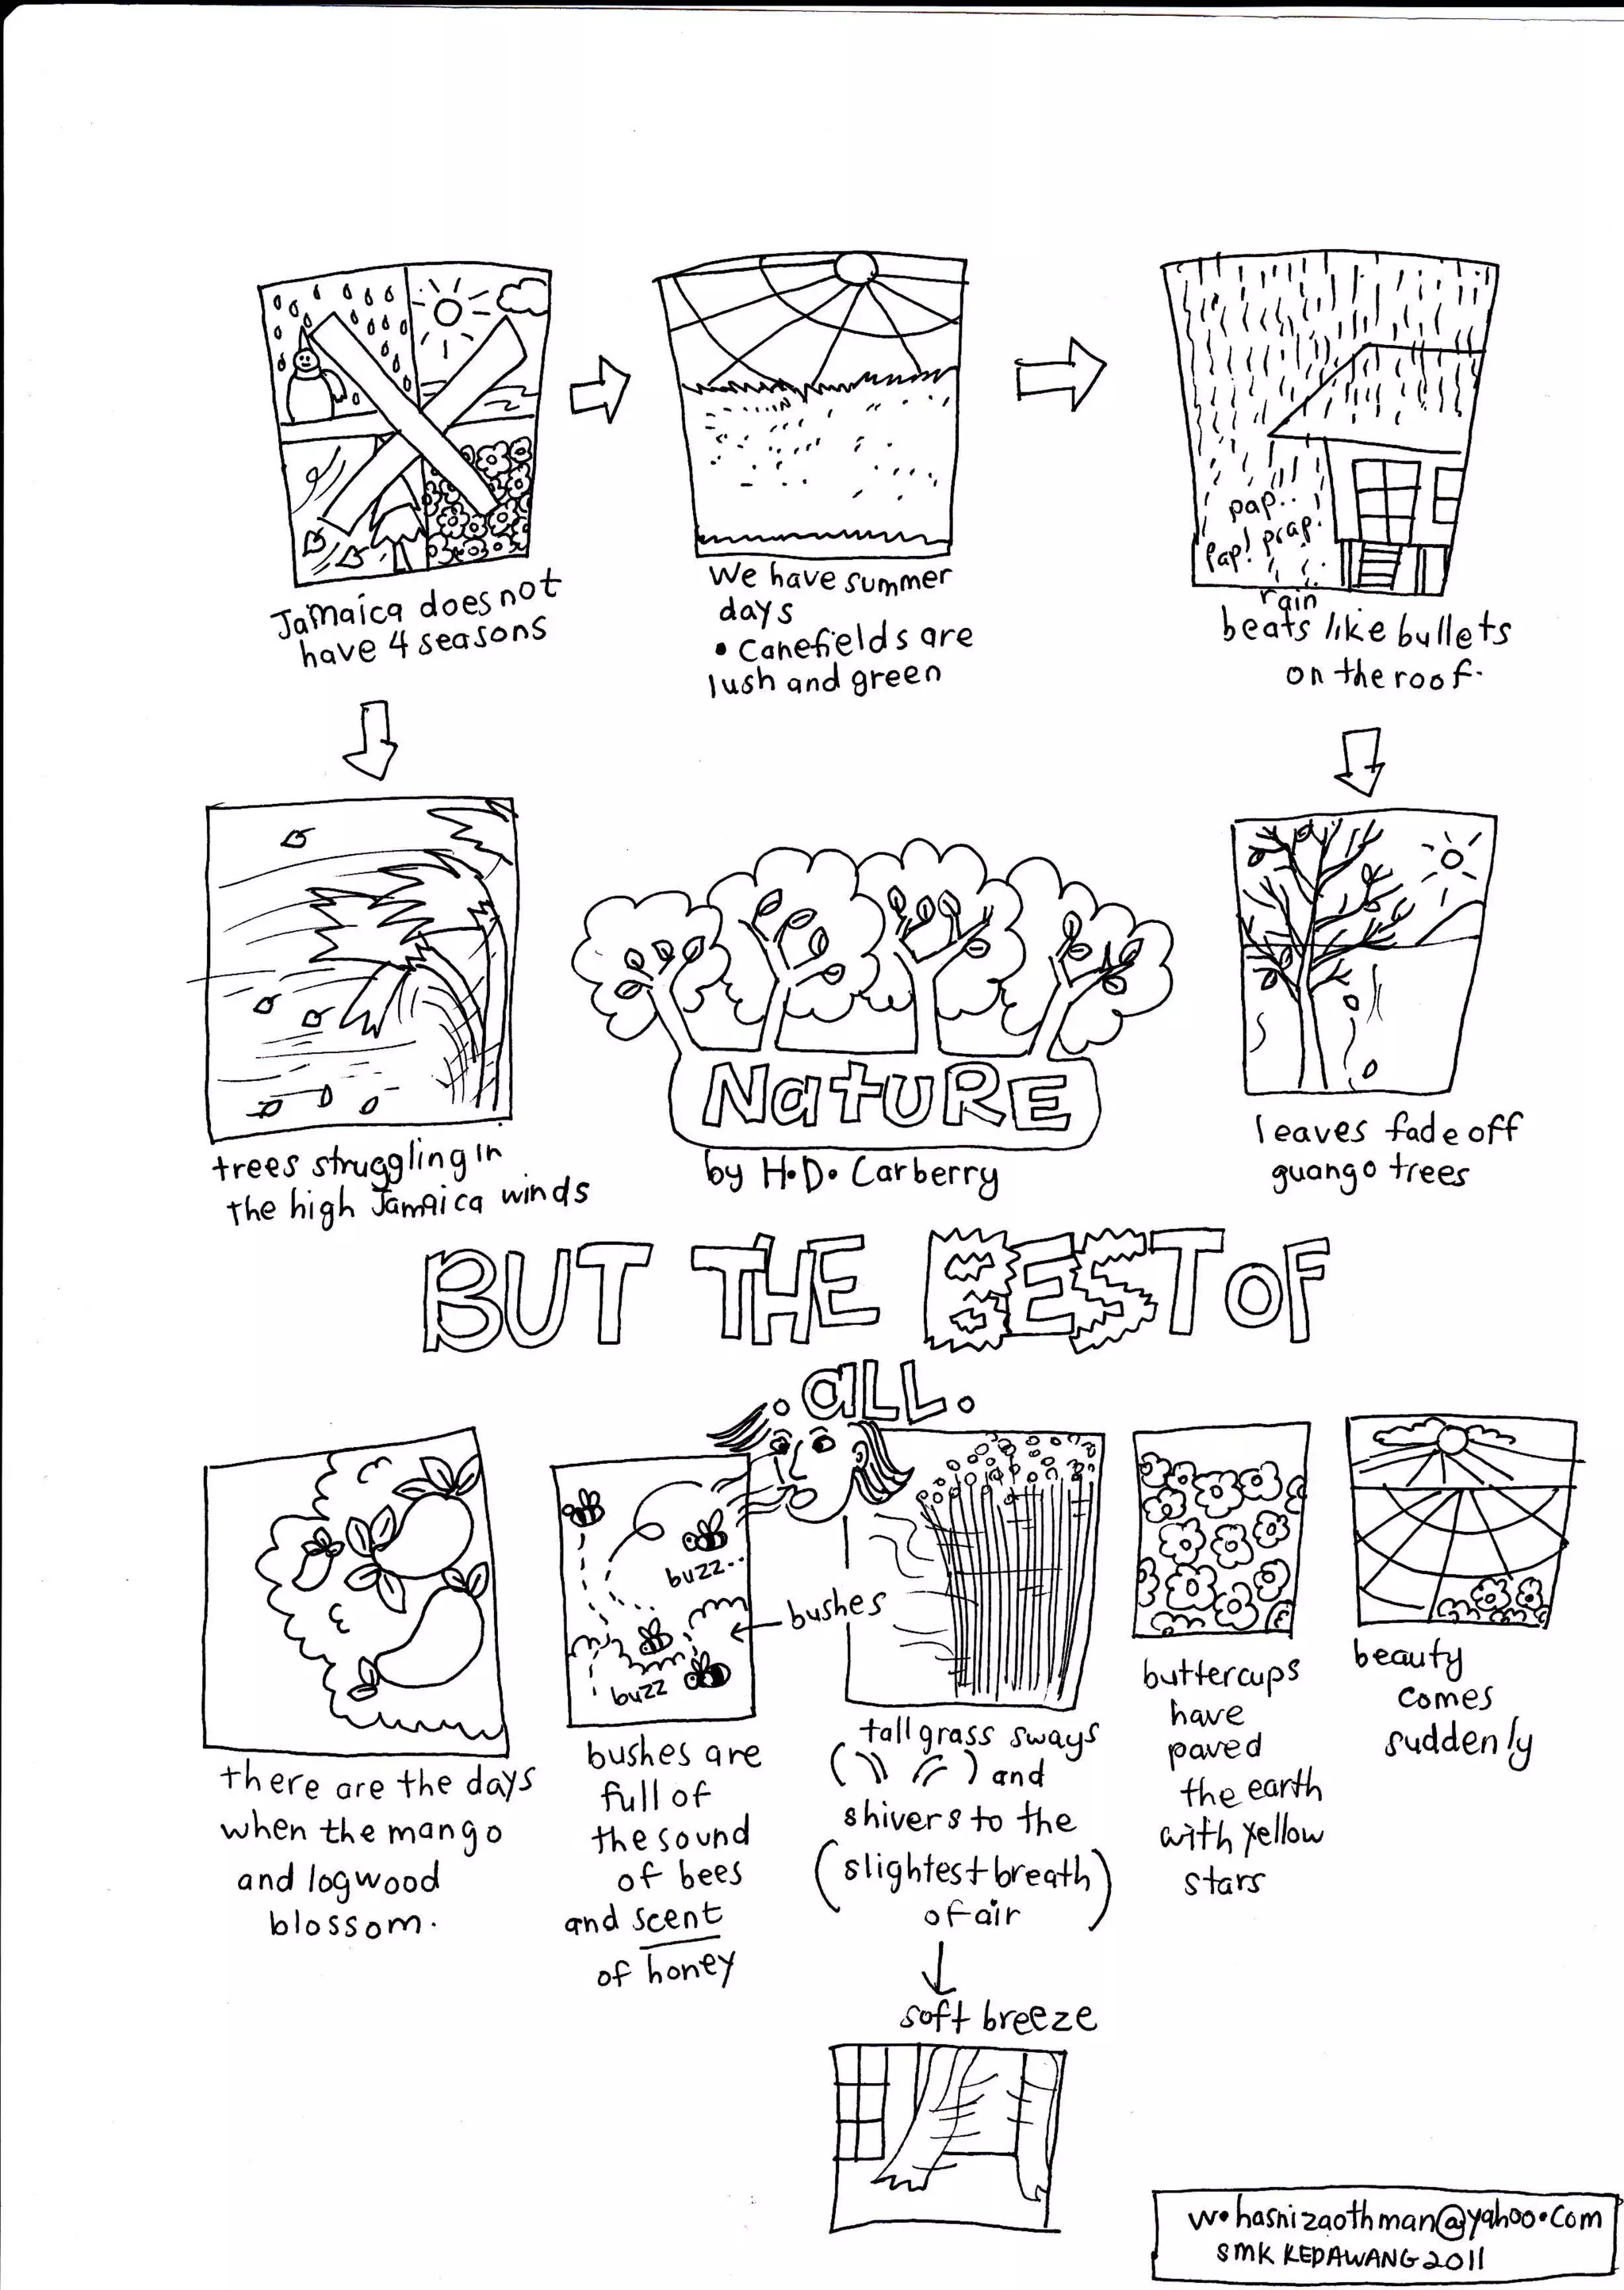 Jamaica does not
have 4 seasons
We have summer
days
• Canefields are
lush and green
pap..
pap! prap.
rain
beats like bullets
on the roof.
trees struggling in
the high Jamaica winds
NatuRE
by H.D. Carberry
leaves fade off
guango trees
BUT THE BEST OF
.aLL.
there are the days
when the mango
and logwood
blossom.
buzz..
buzz
bushes
bushes are
full of
the sound
of bees
and scent
of honey
tall grass sways
( ) and
shivers to the
(slightest breath)
of air
soft breeze
buttercups
have
paved
the earth
with yellow
stars
beauty
comes
suddenly
w.hasnizaothman@yahoo.com
SMK KEDAWANG 2011